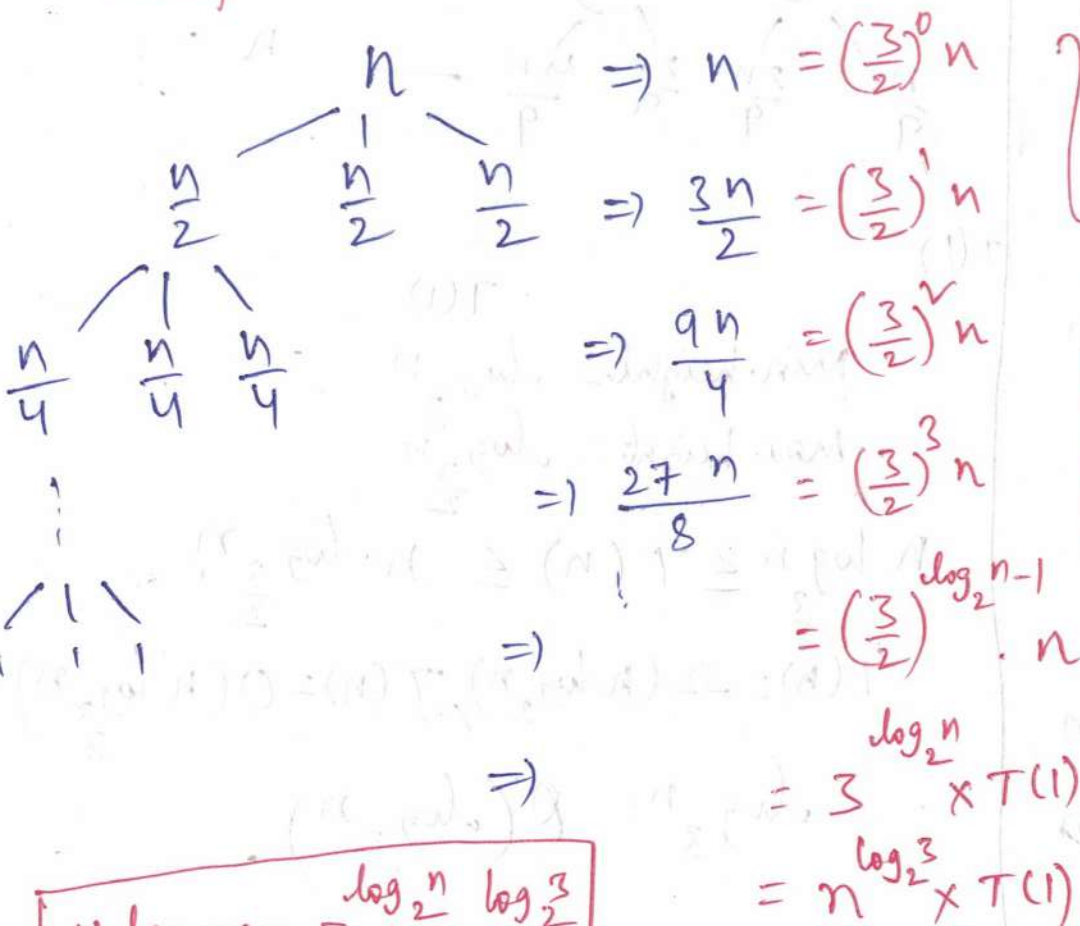 n => n = (3/2)^0 n
n/2 n/2 n/2 => 3n/2 = (3/2)^1 n
n/4 n/4 n/4 => 9n/4 = (3/2)^2 n
=> 27n/8 = (3/2)^3 n
1 1 1 => = (3/2)^(log_2 n-1) . n
=> = 3^(log_2 n) × T(1)
= n^(log_2 3) × T(1)
= log_2 n log_2 3